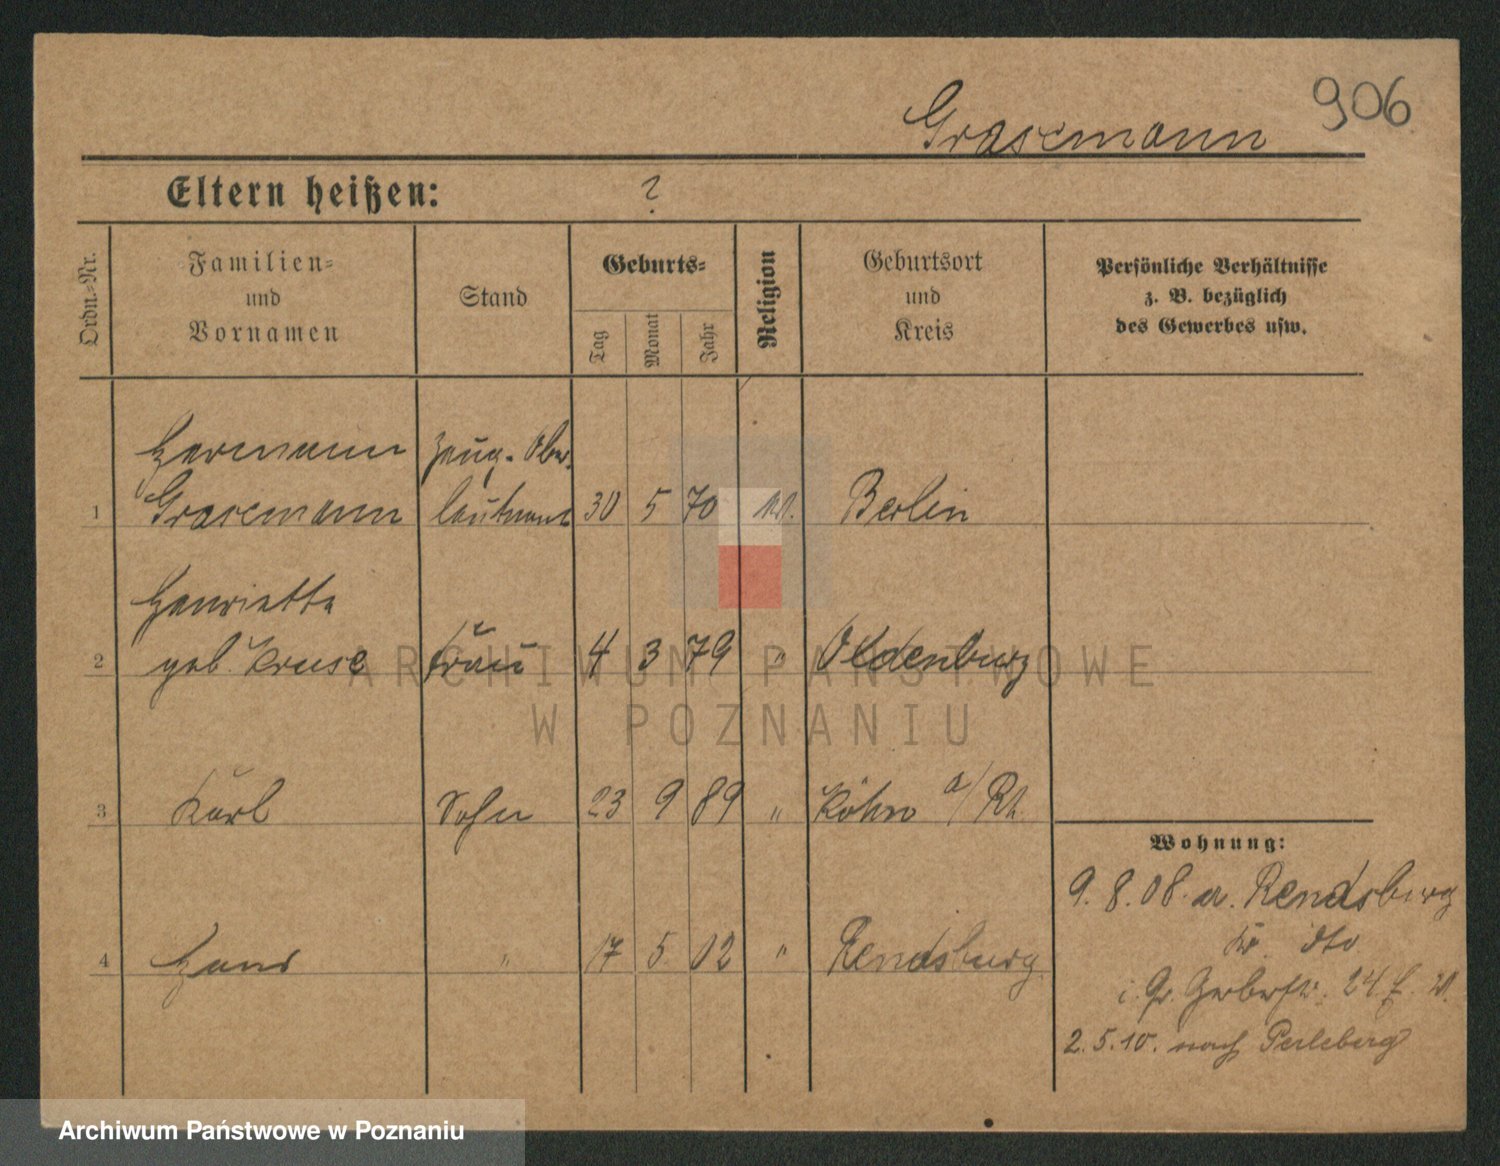 906
Grasemann
Eltern heißen: ?
Ordn.-Nr.
Familien-
und
Vornamen
Stand
Geburts-
Tag
Monat
Jahr
Religion
Geburtsort
und
Kreis
Persönliche Verhältnisse
z. B. bezüglich
des Gewerbes usw.
Hermann Zeug-Ober
1 Grasemann leutnant 30 5 70 Berlin
Henriette
2 geb. Kruse Frau 4 3 79 " Oldenburg
3 Karl Sohn 23 9 89 " Köhn a/Rh.
Wohnung:
9. 8. 08. a. Rendsburg
Kr. dto
4 Hans " 17 5 02 " Rendsburg
i. Gr. Gerberstr. 24.
2. 5. 10. nach Perleberg
ARCHIWUM PAŃSTWOWE
W POZNANIU
Archiwum Państwowe w Poznaniu